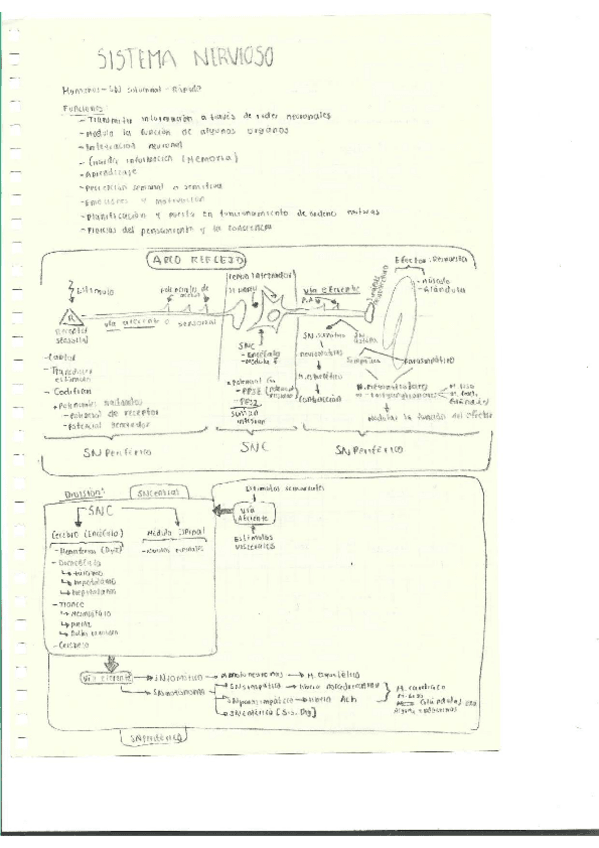 SISTEMA NERVIOSO
Funciones:
- Transmitir información a través de redes neuronales
- Modula la función de algunos organos
- Integración neuronal
- Guarda información (Memoria)
- Aprendizaje
- Percepción sensorial o sensitiva
- Emociones y motivación
- Planificación y en funcionamiento de ordenes motoras
- del pensamiento y la conciencia
ARCO REFLEJO
Efector: Respuesta
- Músculo
- Glándula
Estímulo
Potenciales de acción
Centro Integrador
vía eferente
P.A
R
Receptor sensorial
vía aferente o sensorial
- Captar
- Transducir estímulo
- Codificar
• Potenciales graduados
- Potencial de receptor
- Potencial generador
SNC
- Encéfalo
- Médula E
- PPSE
- PPSI
SN. somático
motoneuronas
M. esquelético
Contracción
SN. autónomo
Simpático
Parasimpático
N. postganglionares
Modular la función del efector
SN Periférico
SNC
SN. Periférico
División:
SN central
SNC
Cerebro (Encéfalo)
Médula Espinal
- Nervios espinales
- Hemisferios (D y I)
- Diencéfalo
↳ tálamo
↳ hipotálamo
- Tronco
↳ mesencéfalo
↳ puente
↳ Bulbo raquídeo
- Cerebelo
Estímulos sensoriales
Vía Aferente
Estímulos viscerales
Vía eferente
SN somático → motoneuronas → M. esquelético
SN autónomo
SN simpático → libera noradrenalina
SN parasimpático → libera Ach
SN entérico [Sis. Dig]
M. cardiaco
M. liso
Glándulas exo
Algunas endocrinas
SN periférico